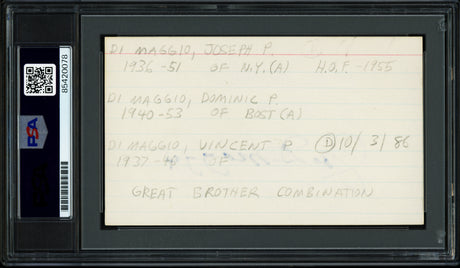 DI MAGGIO, JOSEPH P.
1936-51 OF N.Y.(A) H.O.F.-1955
DI MAGGIO, DOMINIC P.
1940-53 OF BOST(A)
DI MAGGIO, VINCENT P. D 10/3/86
1937-46 OF
GREAT BROTHER COMBINATION
PSA
85420078